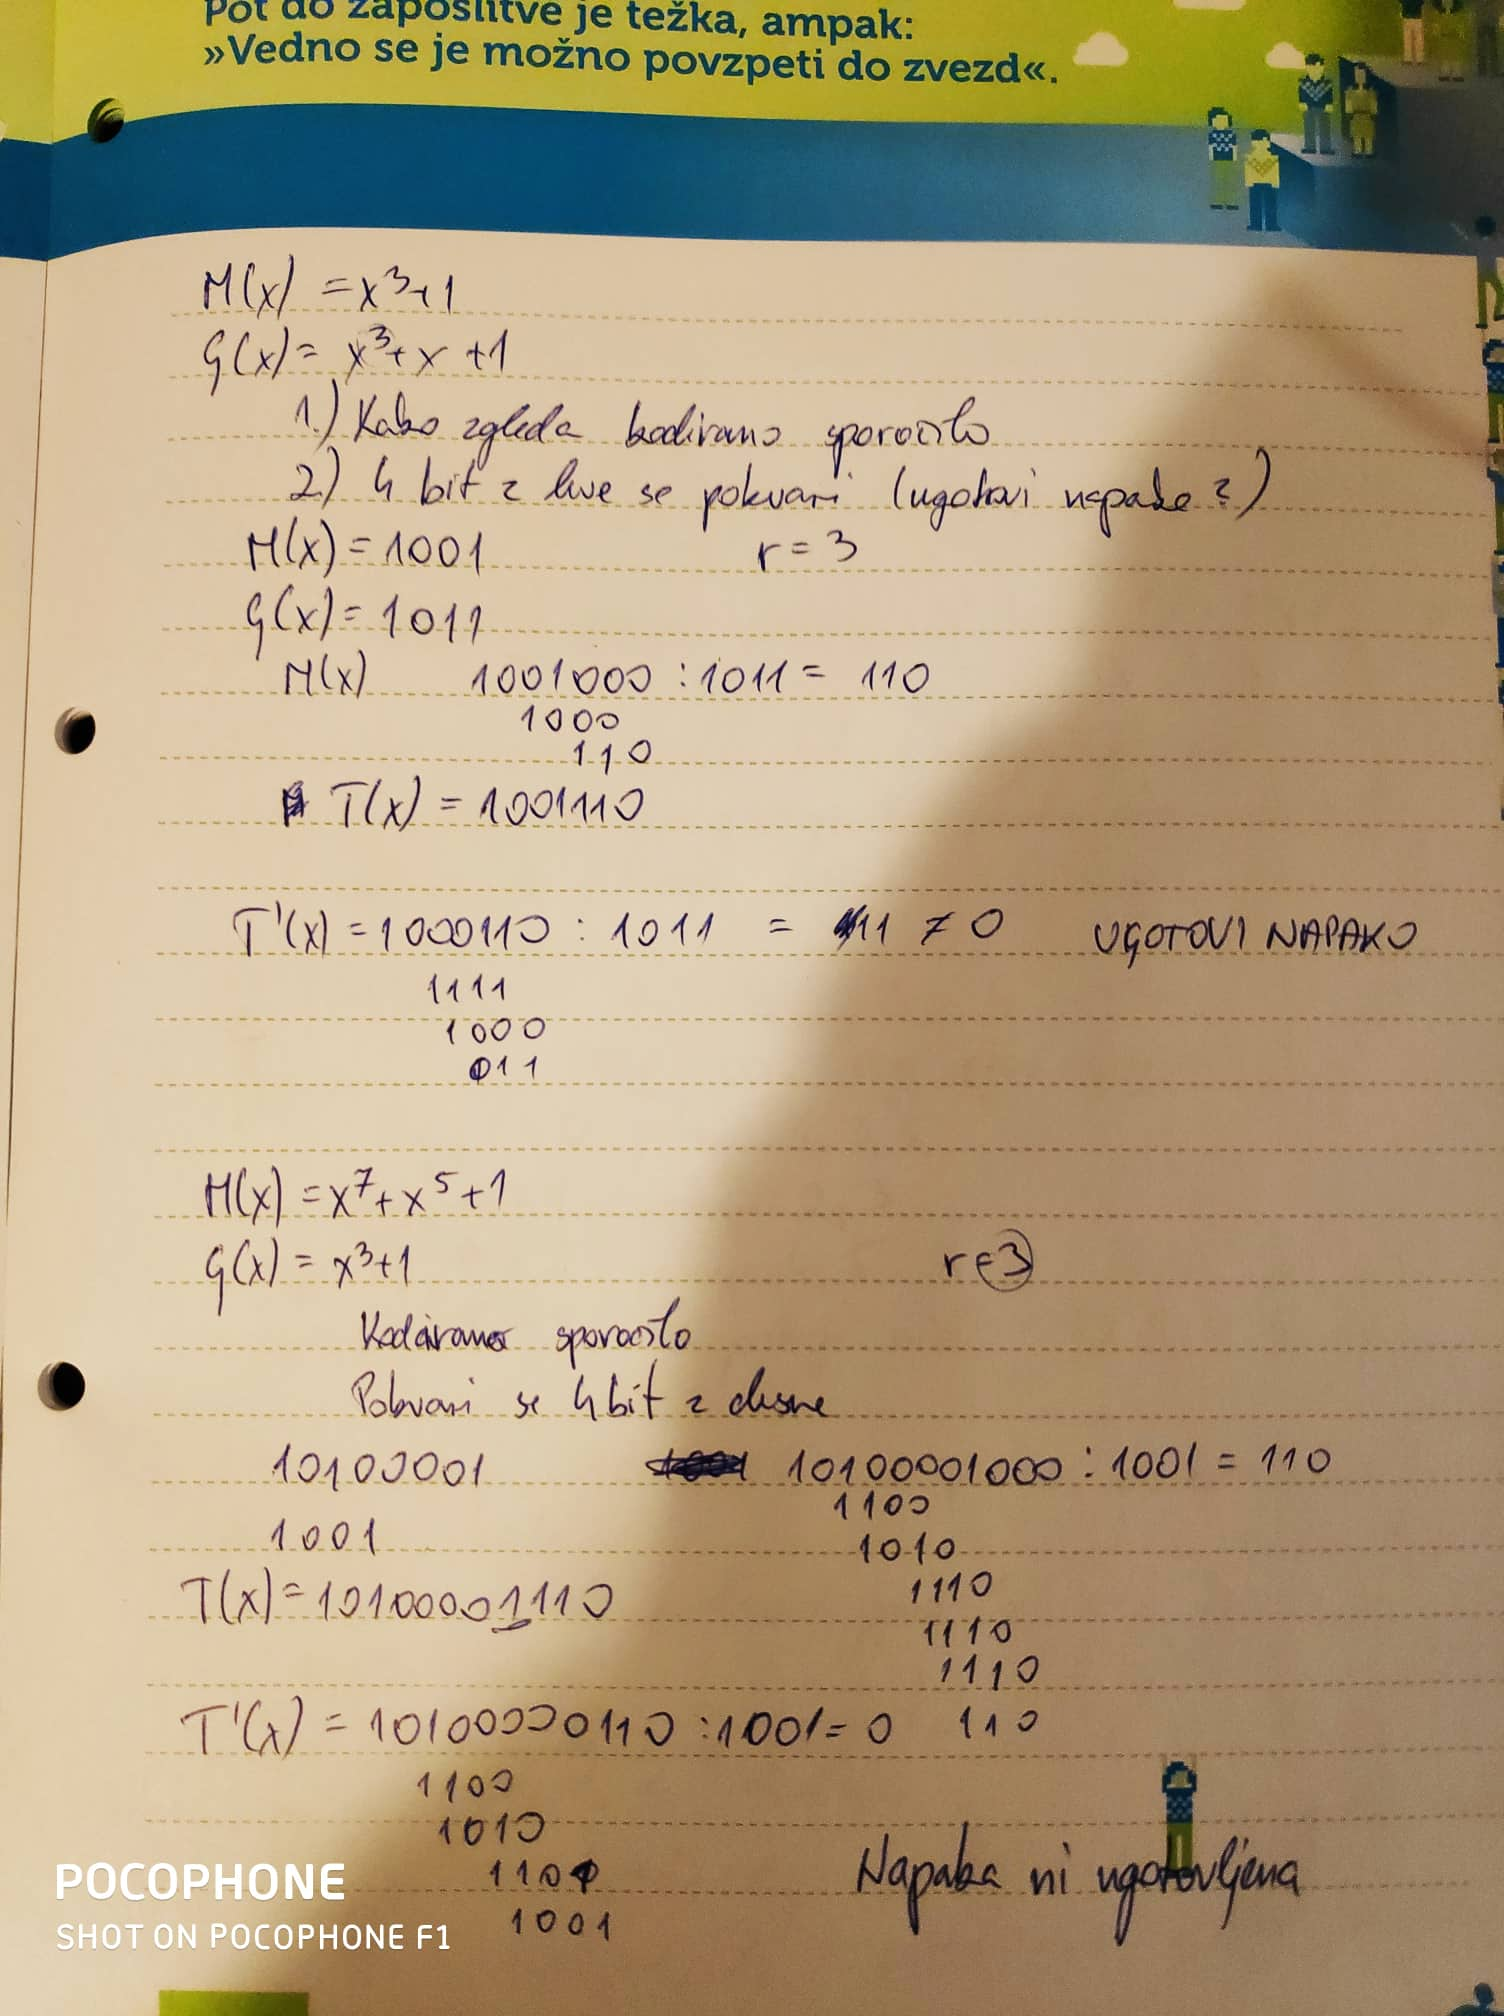 Pot do zaposlitve je težka, ampak:
»Vedno se je možno povzpeti do zvezd«.
M(x) = x³+1
G(x) = x³+x+1
1.) Kako zgleda kodirano sporočilo
2.) 4 bit z leve se pokvari (ugotovi napake?)
M(x) = 1001 r = 3
G(x) = 1011
M(x) 1001000 : 1011 = 110
1000
110
T(x) = 1001110
T'(x) = 1000110 : 1011 = 11 ≠ 0 UGOTOVI NAPAKO
1111
1000
011
M(x) = x⁷+x⁵+1
G(x) = x³+1 r=3
Kodirano sporočilo
Pokvari se 4 bit z desne
10100001 10100001000 : 1001 = 110
1100
1001 1010
T(x) = 10100001110 1110
1110
1110
T'(x) = 10100000110 : 1001 = 0 110
1100
1010
1101
1001
Napaka ni ugotovljena
POCOPHONE
SHOT ON POCOPHONE F1